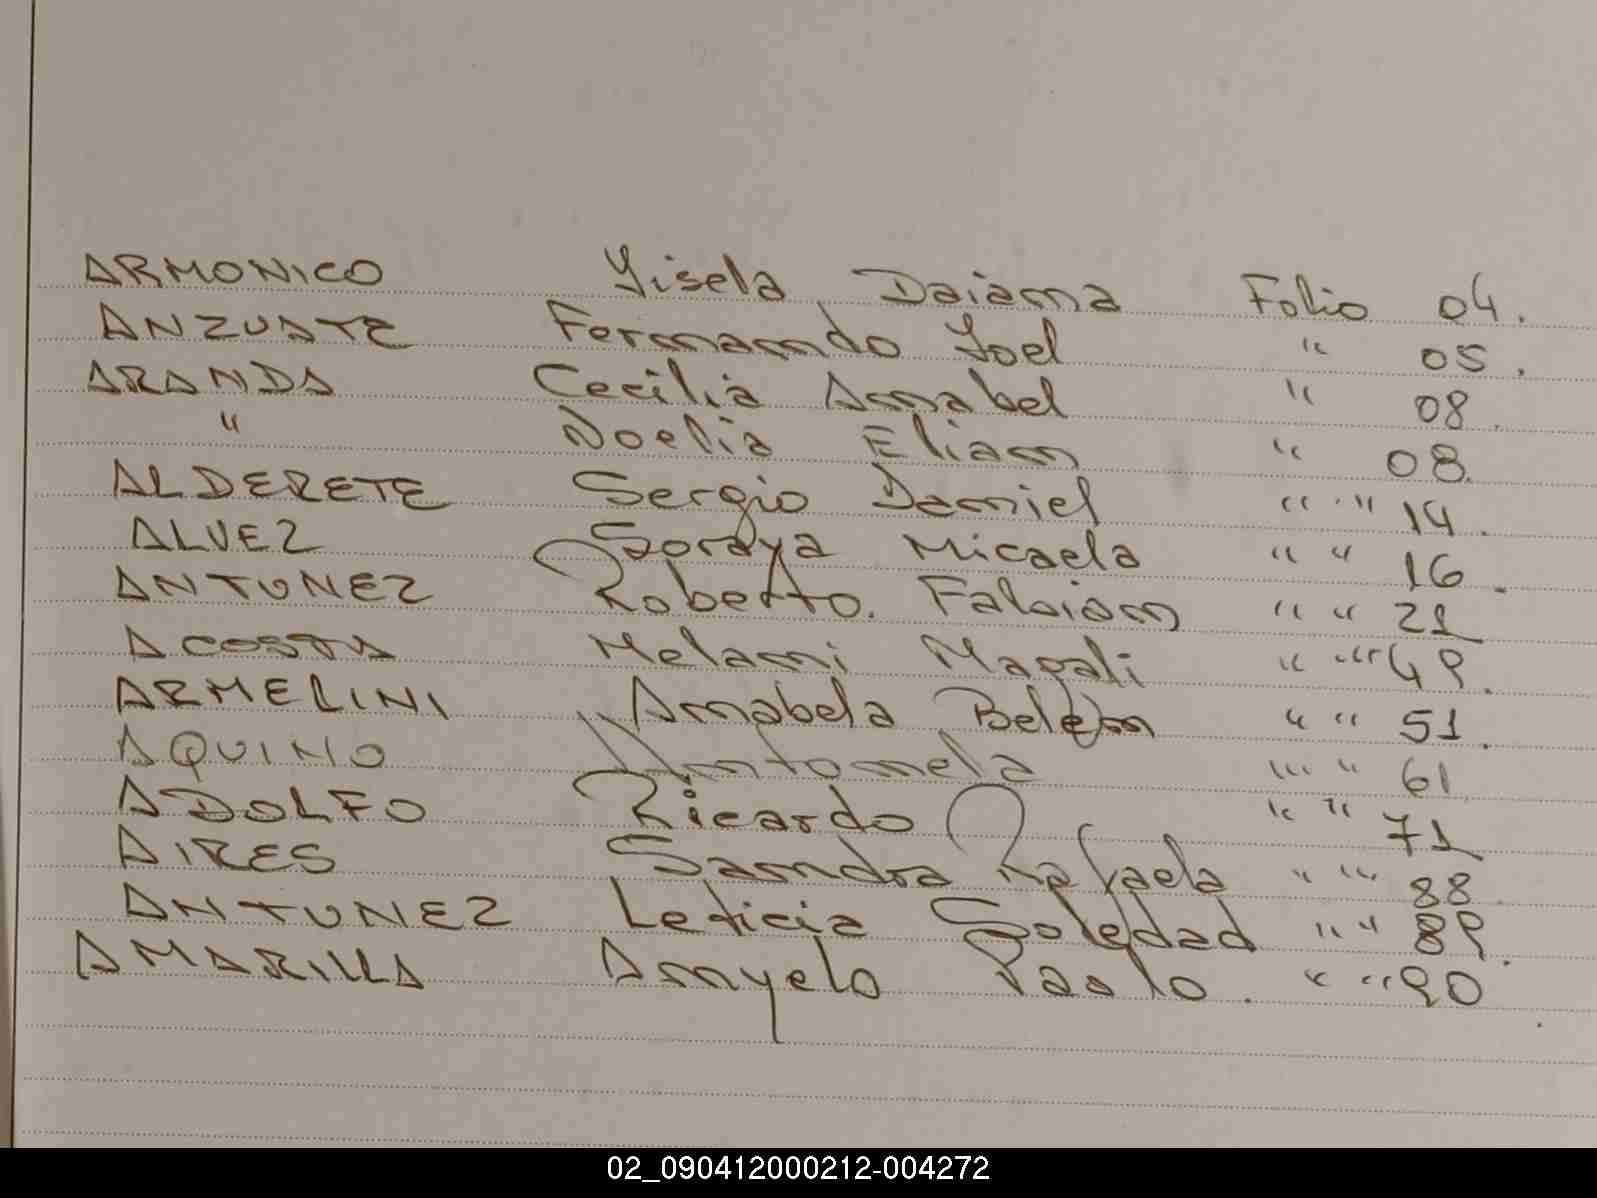 ARMONICO Yisela Daiana Folio 04.
ANZUATE Fernando Joel " 05.
ARANDA Cecilia Anabel " 08.
" Noelia Elian " 08.
ALDERETE Sergio Daniel " " 14.
ALVEZ Soraya Micaela " " 16.
ANTUNEZ Roberto. Fabian " " 21
ACOSTA Melani Magali " " 49.
ARMELINI Anabela Belén " " 51.
AQUINO Antonela " " 61
ADOLFO Ricardo " " 71
AIRES Sandra Rafaela " " 88.
ANTUNEZ Leticia Soledad " " 89.
AMARILLA Angelo Paolo. " " 90.
02_090412000212-004272